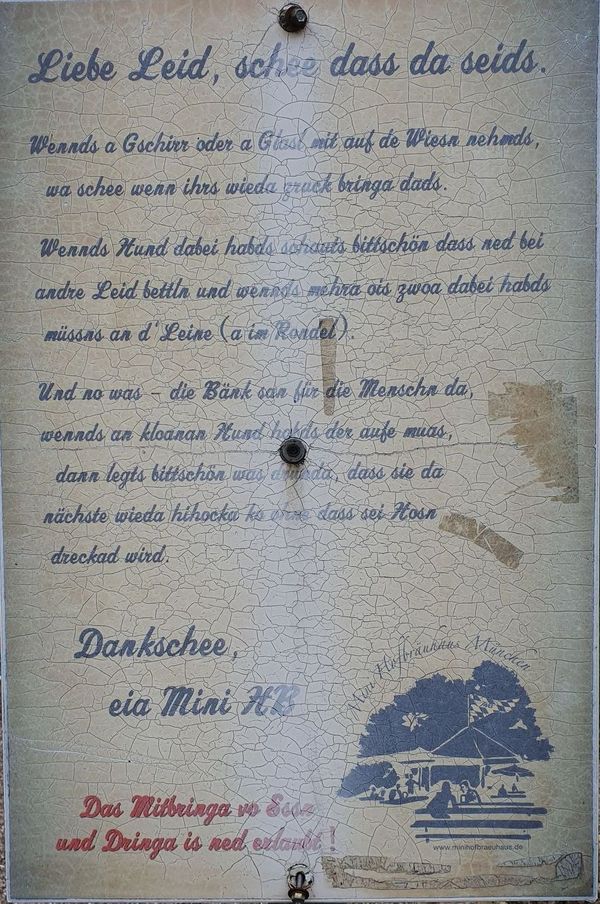 Liebe Leid, schee dass da seids.
Wennds a Gschirr oder a Glasl mit auf de Wiesn nehmds,
wa schee wenn ihrs wieda zruck bringa dads.
Wennds Hund dabei habds schauts bittschön dass ned bei
andre Leid bettln und wennds mehra ois zwoa dabei habds
müssns an d'Leine (a im Rondel).
Und no was - die Bänk san für die Menschn da,
wennds an kloanan Hund habds der aufe muas,
dann legts bittschön was drunda, dass sie da
nächste wieda hihocka ko ohne dass sei Hosn
dreckad wird.
Dankschee,
eia Mini HB
Mini Hofbräuhaus München
www.minihofbraeuhaus.de
Das Mitbringa vo Essn
und Dringa is ned erlaubt !